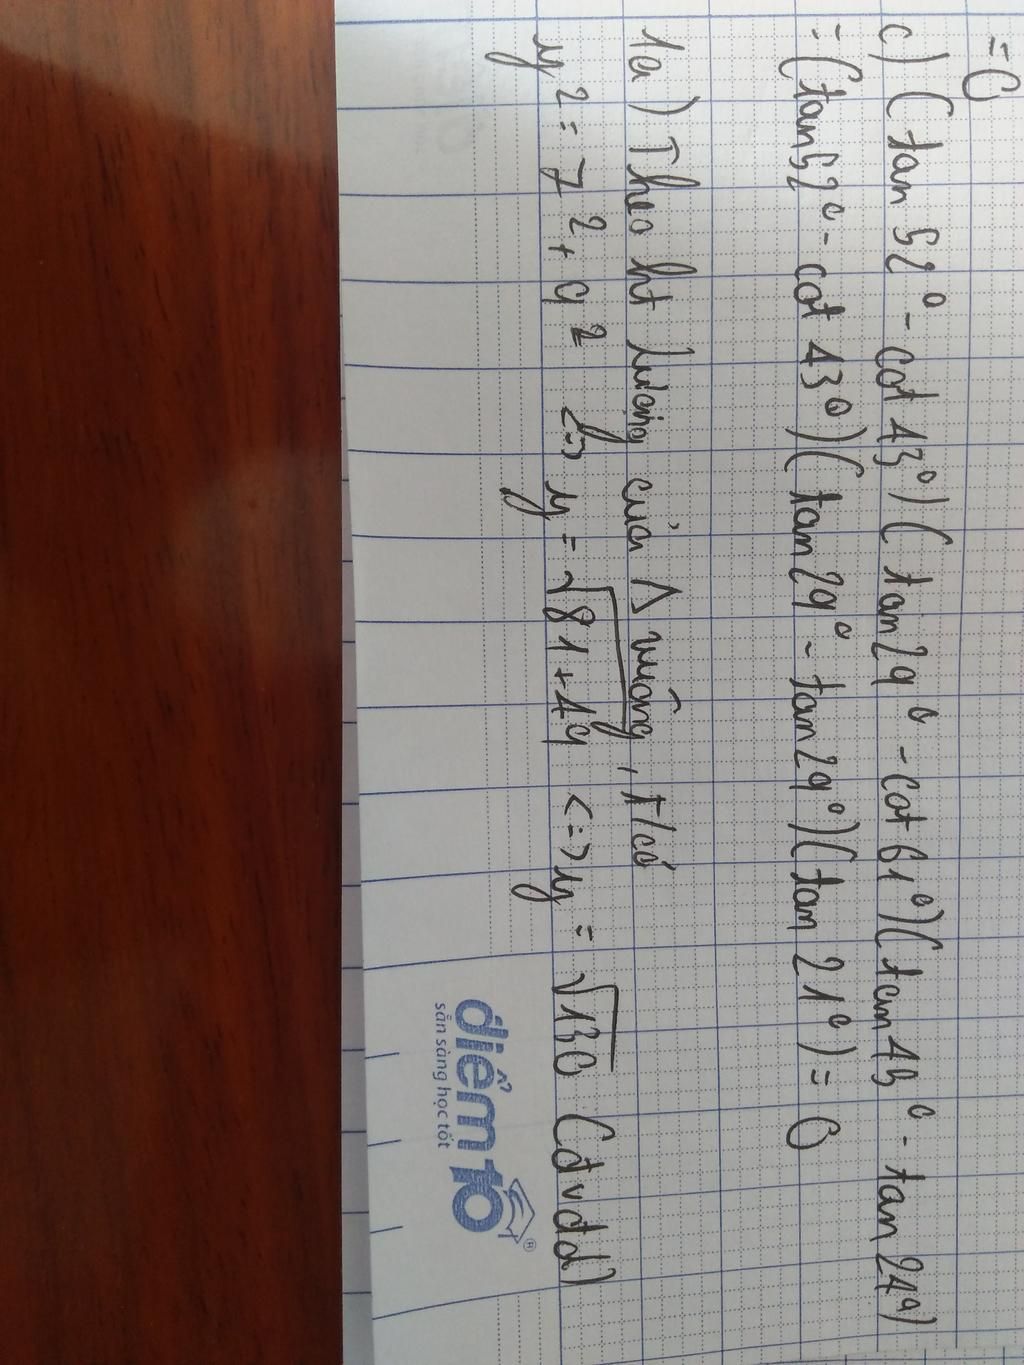 =0
c) (tan 52° - cot 43°)(tan 29° - cot 61°)(tan 45° - tan 24°)
= (tan 52° - cot 43°)(tan 29° - tan 29°)(tan 21°) = 0
1a) Theo ht lượng của Δ vuông, t/có
y² = 7² + 9² <=> y = √81+49 <=> y = √130 (đvđd)
điểm10®
sẵn sàng học tốt